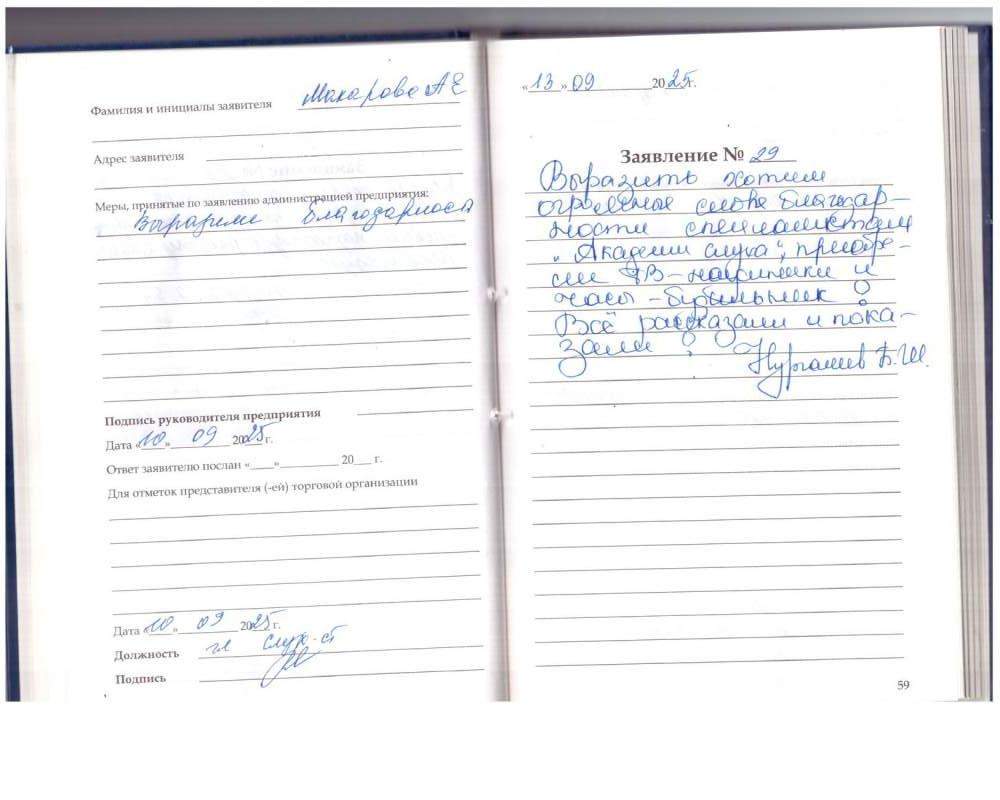 Фамилия и инициалы заявителя Макарова А Е
Адрес заявителя
Меры, принятые по заявлению администрацией предприятия:
Выразили благодарность
Подпись руководителя предприятия
Дата «10» 09 2025 г.
Ответ заявителю послан «____»__________ 20___ г.
Для отметок представителя (-ей) торговой организации
Дата «10» 09 2025 г.
Должность гл слух-ст
Подпись
«13» 09 2025г.
Заявление № 29
Выразить хотим
огромные слова благодар-
ности специалистам
"Академии слуха", приобре-
ли ТВ-наушники и
часы -будильник!
Всё рассказали и пока-
зали!
Нургалиев Б.Ш.
59